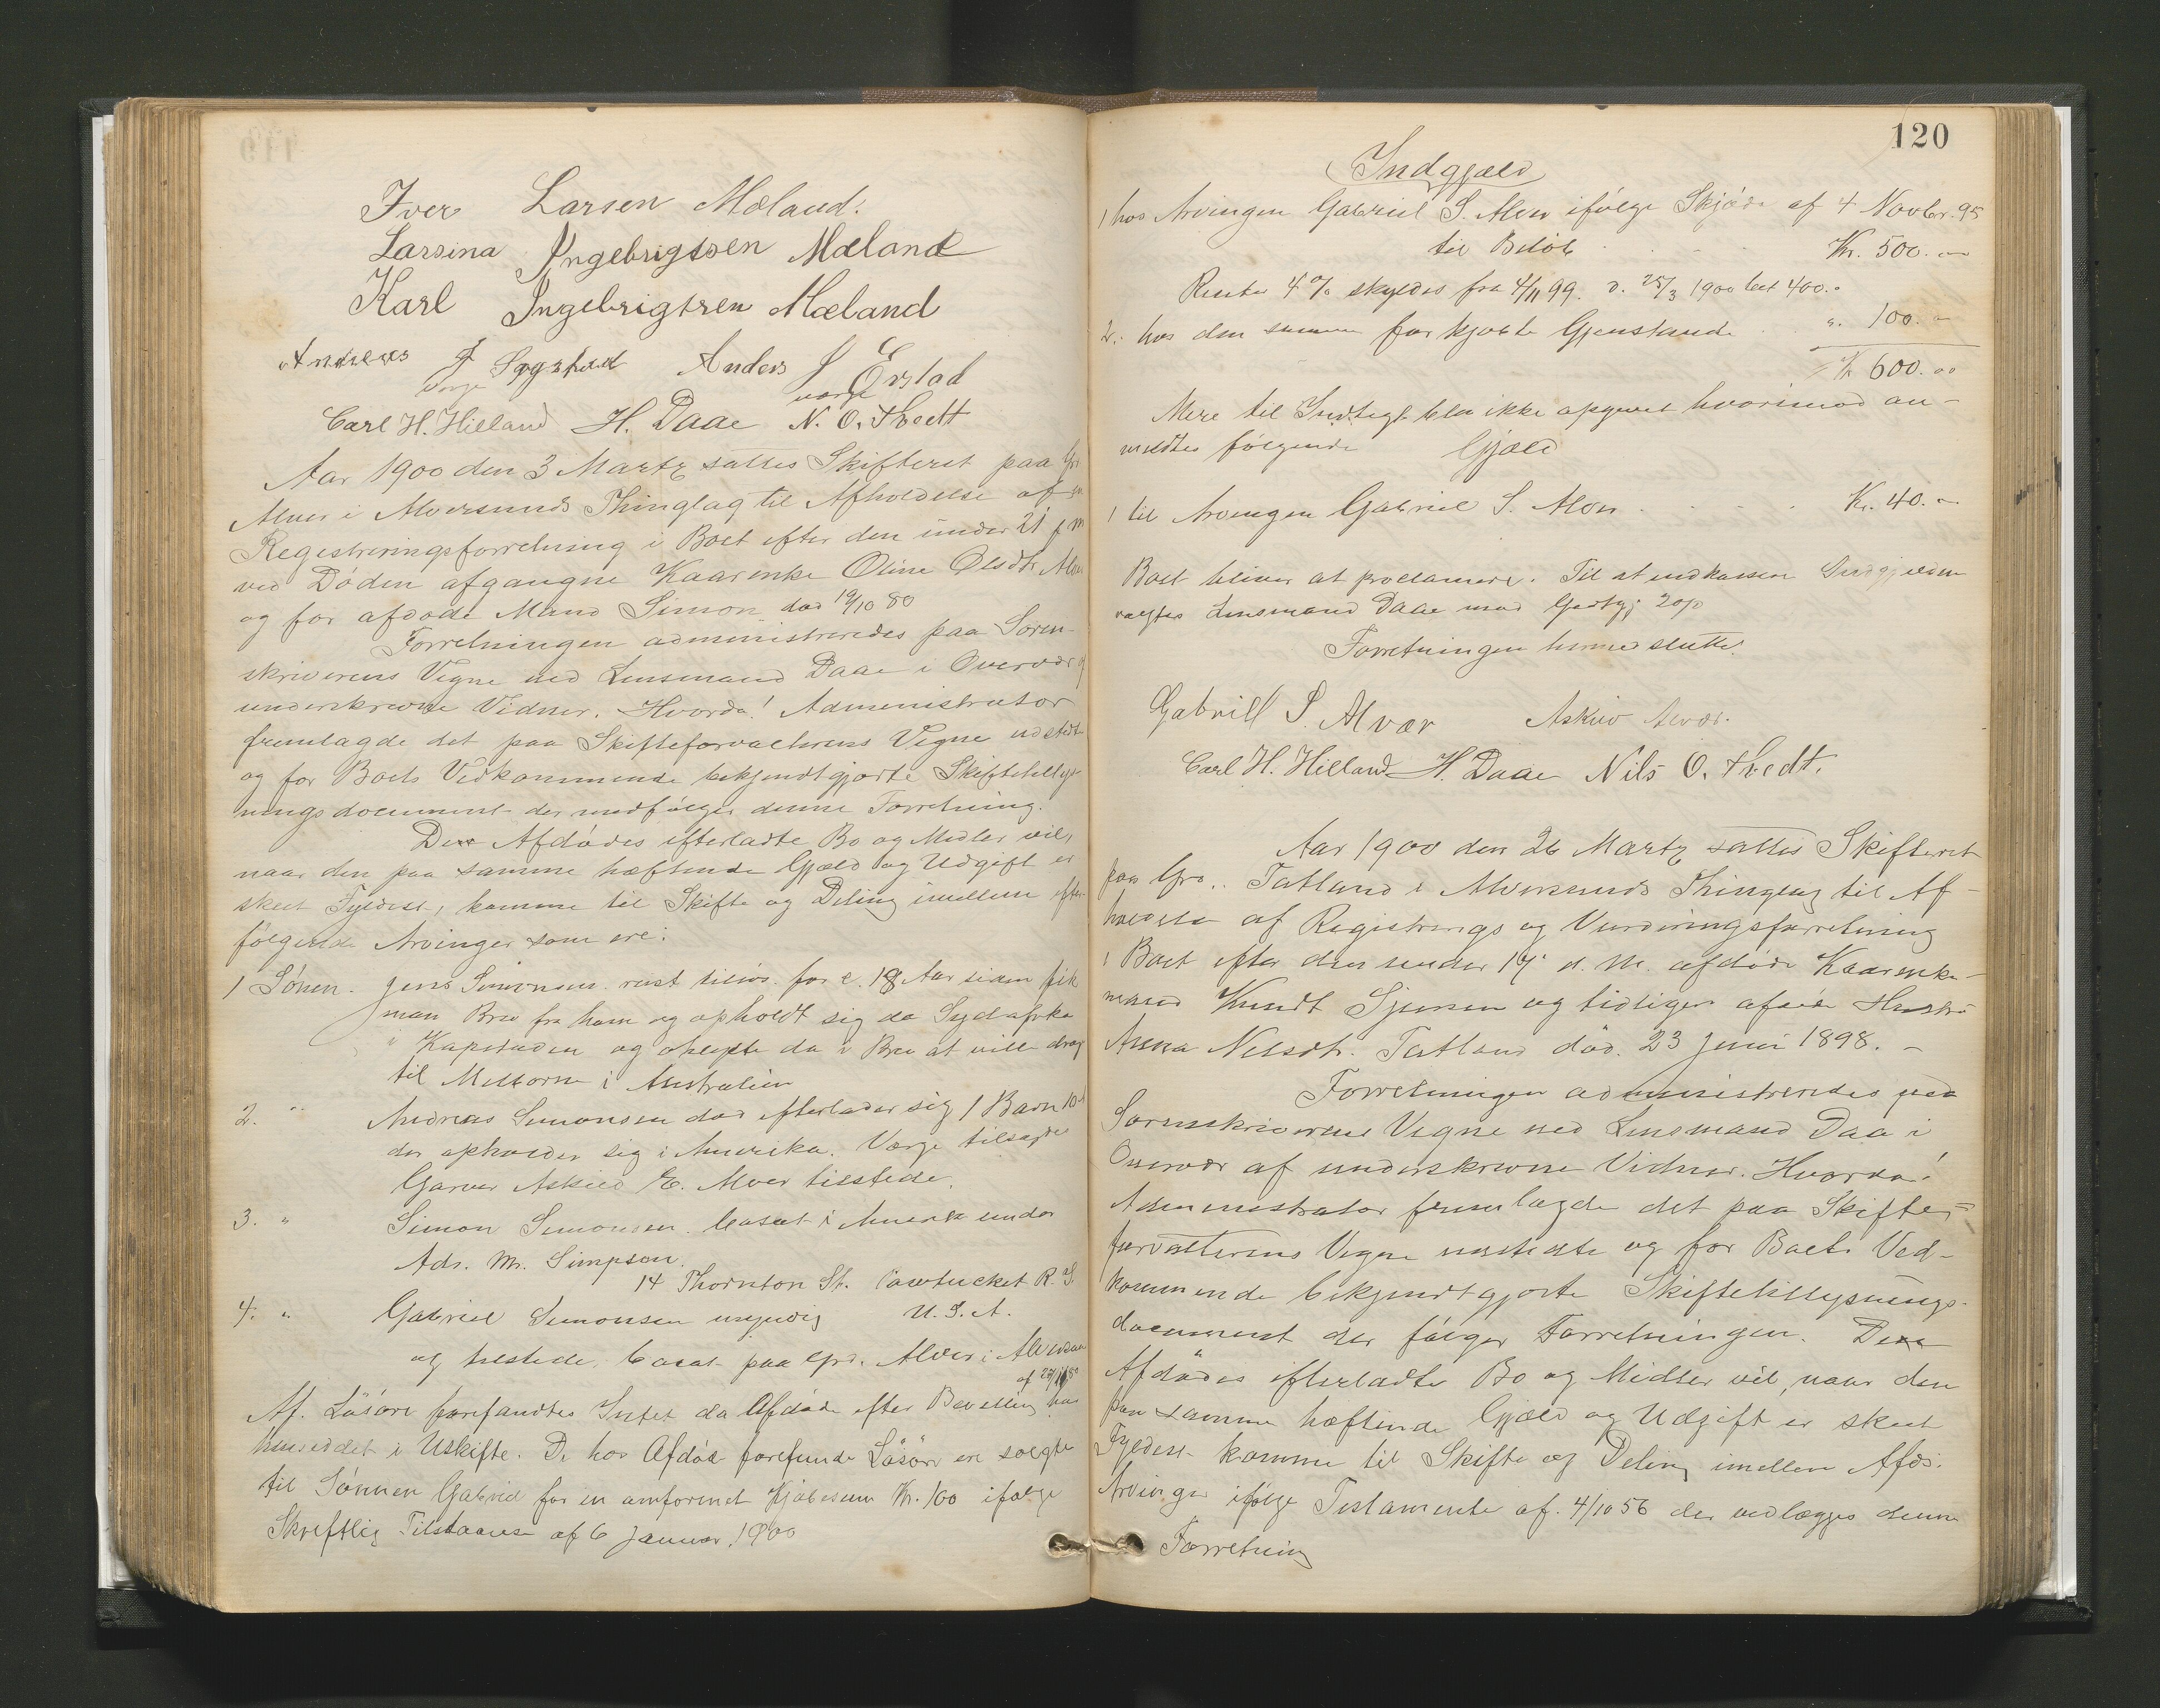 Iver Larsen Mæland.
Larsina Ingebrigtsen Mæland
Karl Ingebrigtsen Mæland
Andreas J Sagstad Anders J Erstad
Værge værge
Carl H. Hilland H. Daae N. O. Tvedt
Aar 1900 den 3 Martz sattes Skifteret paa Gr
Alver i Alversunds Thinglag til Afholdelse af
Registreringsforretning i Boet efter den under 21 f M
ved Døden afgangne Kaarenke Oline Olsdtr. Alver
og før afdøde Mand Simon død 19/10 80
Forretningen administreredes paa Soren-
skriverens Vegne ved Lensmand Daae i Overvær
underskrevne Vidner. Hvorda! Administrator
fremlagde det paa Skifteforvalterens Vegne udstedte
og for Boets Vedkommende bekjendtgjorte Skiftetillys-
ningsdocument der medfølger denne Forretning.
Den Afdødes efterladte Bo og Midler vil,
naar den paa samme hæftende Gjæld og Udgift er
skeet Fyldest, komme til Skifte og Deling imellem efter-
følgende Arvinger som ere:
1 Sønen. Jens Simonsen reist tilsøs for c. 18 Aar siden fik
man Brev fra ham og opholdt sig da Sydafrika
Kapstaden og da i Brev at ville drage
til Melborne i Australien
2. " Andreas Simonsen død efterlader sig 1 Barn 10
der opholder sig i Amerika. Værge tilsagde
Garver Askild E. Alver tilstede.
3. " Simon Simonsen bosat i Amerika under
Adr. Mr. Simpson.
14 Thornton St. Pawtucket R. I.
4. " Gabriel Simonsen myndig U. S. A.
og tilstede, bosat paa Grd. Alver i Alversun
af
Af Løsøre forefandtes Intet da Afdøde efter Bevilling har
hensiddet i Uskifte. De hos Afdøde forefunde Løsøre ere solgte
til Sønnen Gabriel for en omforenet Kjøbesum Kr. 100 ifølge
Skriftlig Tilstaaelse af 6 Januar 1900
120
Indgjæld
1 hos Arvingen Gabriel S. Alver ifølge Skjøde af 4 Novbr. 95
til Beløb Kr. 500.00
Renter 4 % skyldes fra 4/11 99. d. 25/3 1900 bet 400.
2. hos den samme for kjøbte Gjenstande " 100.
Kr 600.00
Mere til Indtægt blev ikke opgivet hvorimod an-
meldtes følgende Gjæld
1 til Arvingen Gabriel S. Alver Kr. 40.
Boet bliver at proclamere. Til at indkassere Indgjælden
valgtes Lensmand Daae mod Godtgj 2 %
Forretningen hermed sluttet.
Gabriell S. Alvær Askild Alvær.
Carl H. Hilland H. Daae Nils O. Tvedt.
Aar 1900 den 26 Martz sattes Skifteret
paa Grd. Tatland i Alversunds Thinglag til Af-
holdelse af Registrerings og Vurderingsforretning
i Boet efter den under 17 d. M. afdøde Kaarenke-
mand Knudt Sjursen og tidligere afdøde Hustru
Anna Nelsdtr. Tatland død. 23 Juni 1898. -
Forretningen administreredes paa
Sorenskriverens Vegne ved Lensmand Daa i
Overvær af underskrevne Vidner. Hvorda!
Administrator fremlagde det paa Skifte-
forvalterens Vegne udstedte og for Boets Ved-
kommende bekjendtgjorte Skiftetillysnings-
document der følger Forretningen. Den
Afdødes efterladte Bo og Midler vil, naar den
paa samme hæftende Gjæld og Udgift er skeet
Fyldest komme til Skifte og Deling imellem Afds.
Arvinger ifølge Testamente af. 4/10 56 der vedlægges denne
Forretning